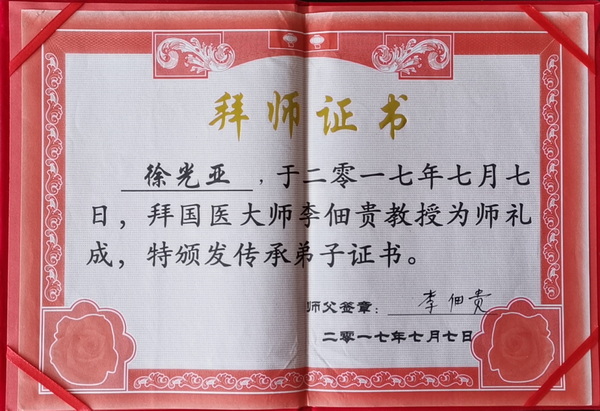 拜师证书
徐光亚，于二零一七年七月七
日，拜国医大师李佃贵教授为师礼
成，特颁发传承弟子证书。
师父签章：李佃贵
二零一七年七月七日